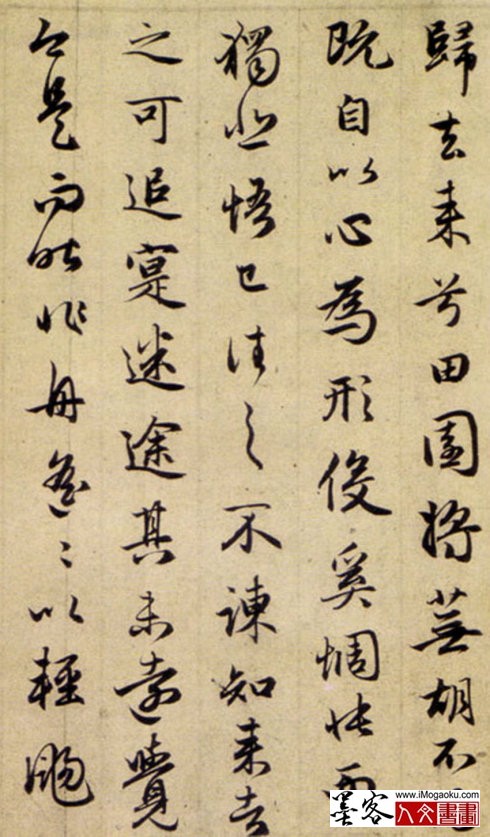 歸去来兮田園將蕪胡不
既自以心為形役奚惆悵而
獨悲悟已往之不諫知来者
之可追寔迷途其未遠覺
今是而昨非舟遙〻以輕颺
墨客 www.iMogaoku.com
人文書畫